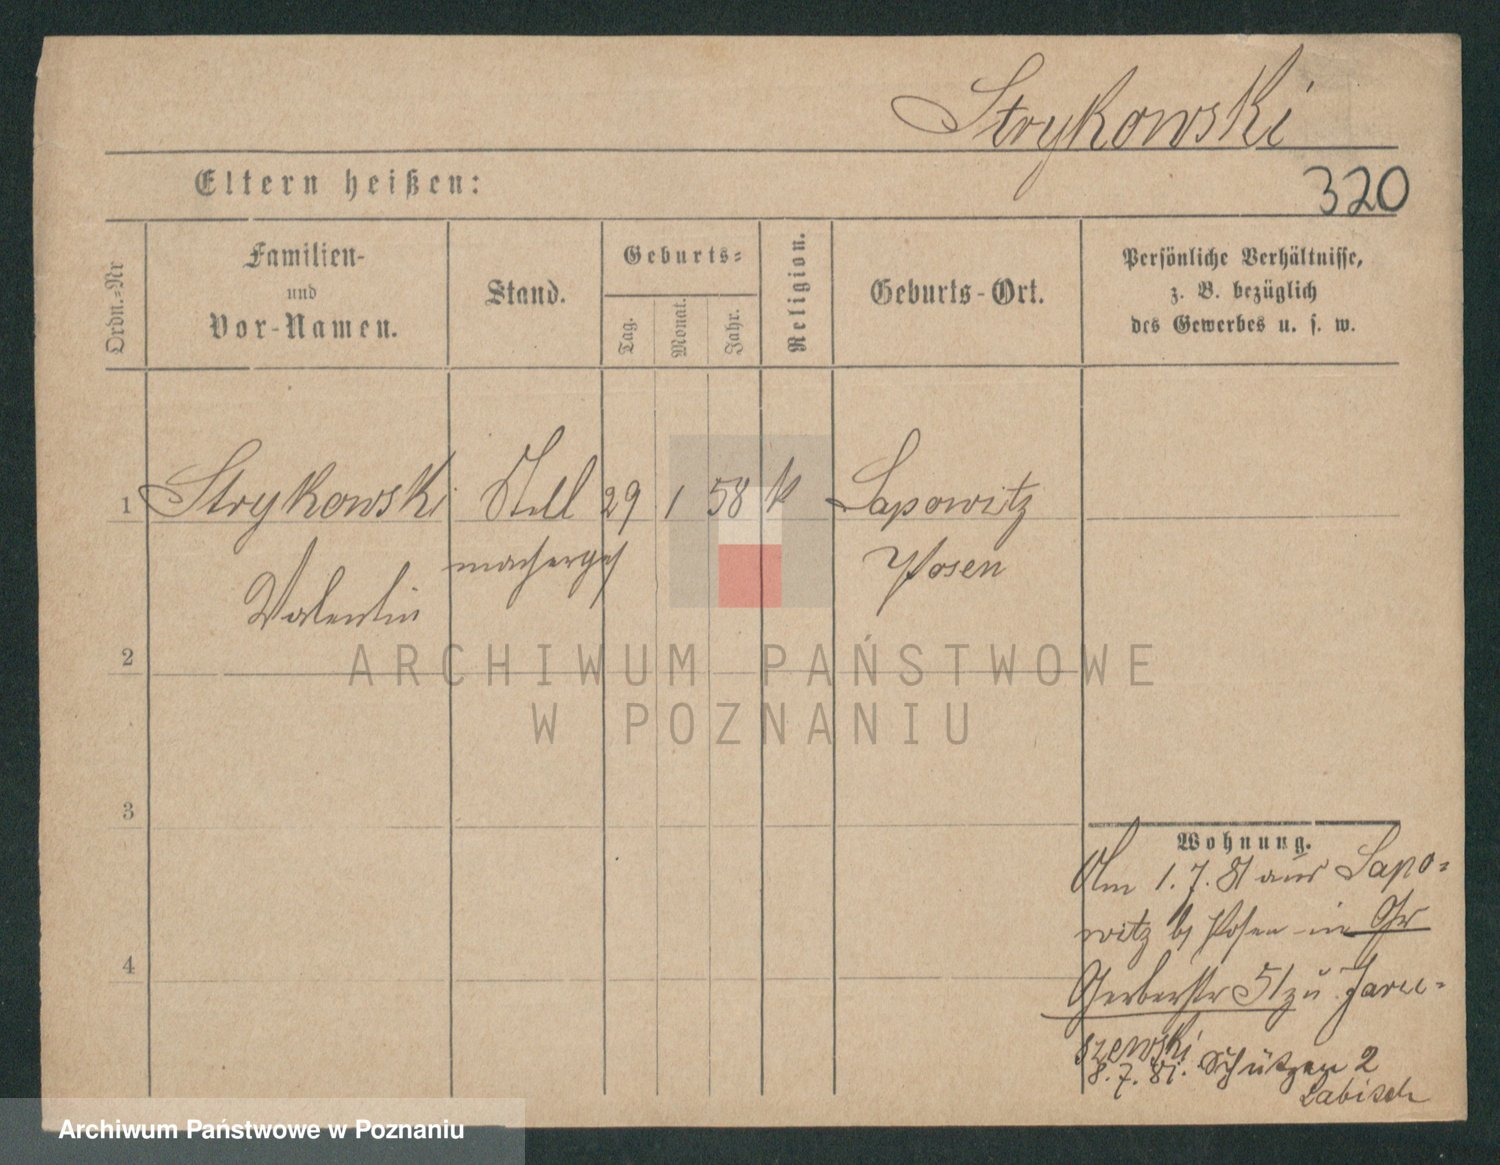 Strykowski
Eltern heißen:
320
Ordn.=Nr
Familien-
und
Vor-Namen.
Stand.
Geburts=
Tag.
Monat.
Jahr.
Religion.
Geburts-Ort.
Persönliche Verhältnisse,
z. B. bezüglich
des Gewerbes u. s. w.
1 Strykowski Stell 29 1 58 k Lapowitz
macherges Posen
Valentin
2
ARCHIWUM PAŃSTWOWE
W POZNANIU
3
Wohnung.
Am 1. 7. 81 aus Lapo-
witz b/ Posen in Gr
4
Gerberstr 51 zu Jaru-
szewski
8. 7. 81. Schützen 2
Labisch
Archiwum Państwowe w Poznaniu